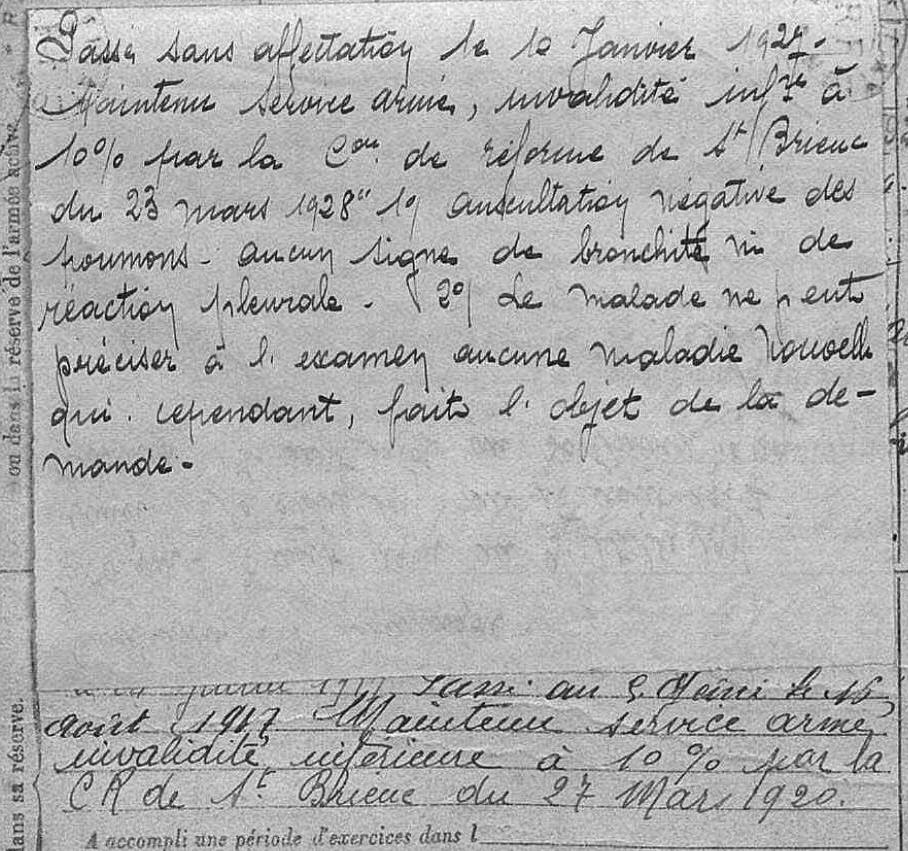 Passé sans affectation le 10 Janvier 1927-
Maintenu service armé, invalidité infre à
10% par la Con de réforme de St Brieuc
du 23 mars 1928 " 1°/ auscultation négative des
poumons - aucun signe de bronchite ni de
réaction pleurale - 2°/ Le malade ne peut
préciser à l'examen aucune maladie nouvelle
qui cependant, faits l'objet de la de-
mande -
Passé au 5 Génie le 16
août 1917 Maintenu service armé
invalidité inférieure à 10% par la
CR de St Brieuc du 27 Mars 1920.
A accompli une période d'exercices dans l
ou dans la réserve de l'armée active.
dans sa réserve.